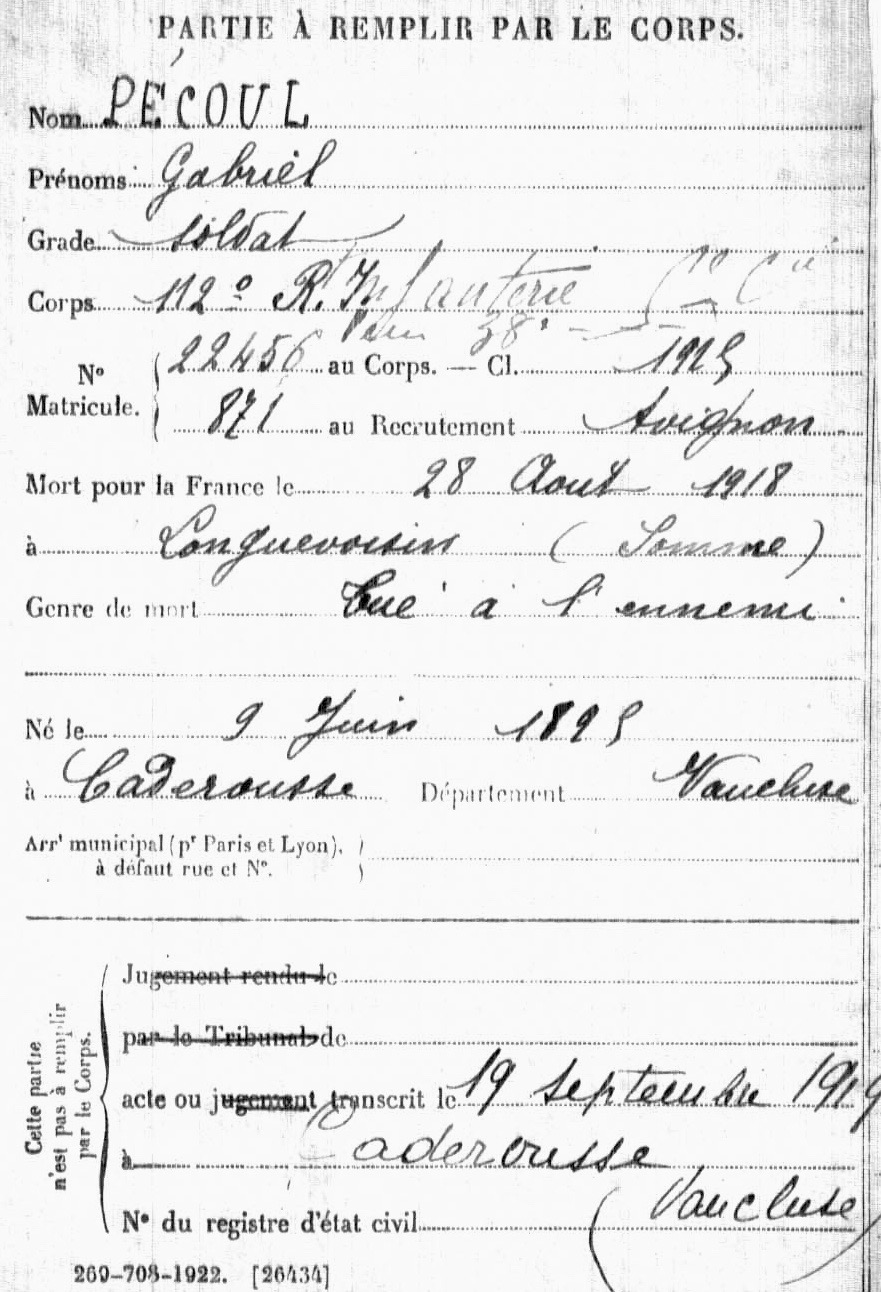 PARTIE À REMPLIR PAR LE CORPS.
Nom PÉCOUL
Prénoms Gabriel
Grade soldat
Corps 112e R. Infanterie
N° Matricule. 22456 au Corps. — Cl. 1915
871 au Recrutement Avignon
Mort pour la France le 28 Aout 1918
à Longuevoisin (Somme)
Genre de mort tué à l'ennemi
Né le 9 Juin 1895
à Caderousse Département Vaucluse
Arrt municipal (pr Paris et Lyon),
à défaut rue et N°.
Cette partie
n'est pas à remplir
par le Corps.
Jugement rendu le
par le Tribunal de
acte ou jugement transcrit le 19 septembre 1919
à Caderousse
(Vaucluse)
N° du registre d'état civil
269-708-1922. [26434]